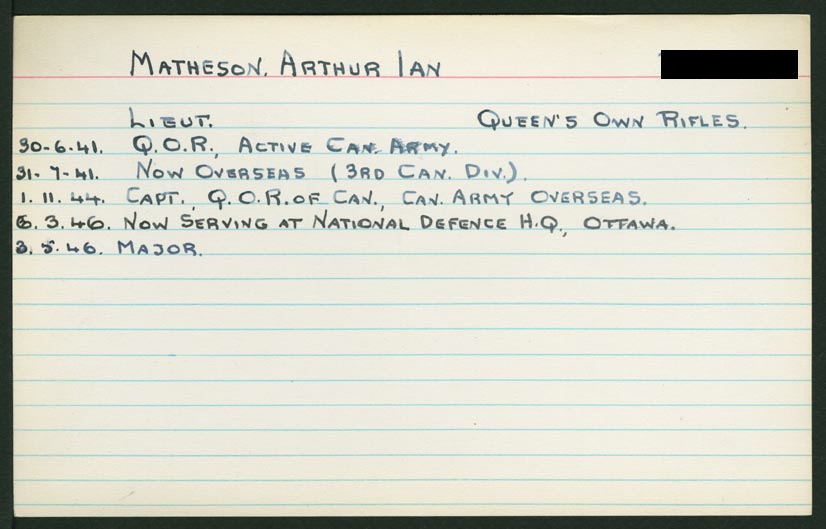 MATHESON, ARTHUR IAN
LIEUT. QUEEN'S OWN RIFLES.
30-6-41. Q.O.R., ACTIVE CAN. ARMY.
31-7-41. NOW OVERSEAS (3RD CAN. DIV.).
1.11.44. CAPT., Q.O.R. OF CAN., CAN. ARMY OVERSEAS.
6.3.46. NOW SERVING AT NATIONAL DEFENCE H.Q., OTTAWA.
3.5.46. MAJOR.